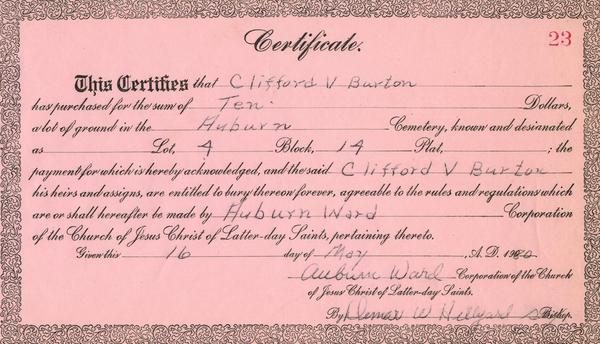 Certificate. 23
This Certifies that Clifford V Burton
has purchased for the sum of Ten Dollars,
a lot of ground in the Auburn Cemetery, known and designated
as Lot, 4 Block, 14 Plat, ; the
payment for which is hereby acknowledged, and the said Clifford V Burton
his heirs and assigns, are entitled to bury thereon forever, agreeable to the rules and regulations which
are or shall hereafter be made by Auburn Ward Corporation
of the Church of Jesus Christ of Latter-day Saints, pertaining thereto.
Given this 16 day of May , A.D. 19
Auburn Ward Corporation of the Church
of Jesus Christ of Latter-day Saints.
By W Hillyard Bishop.